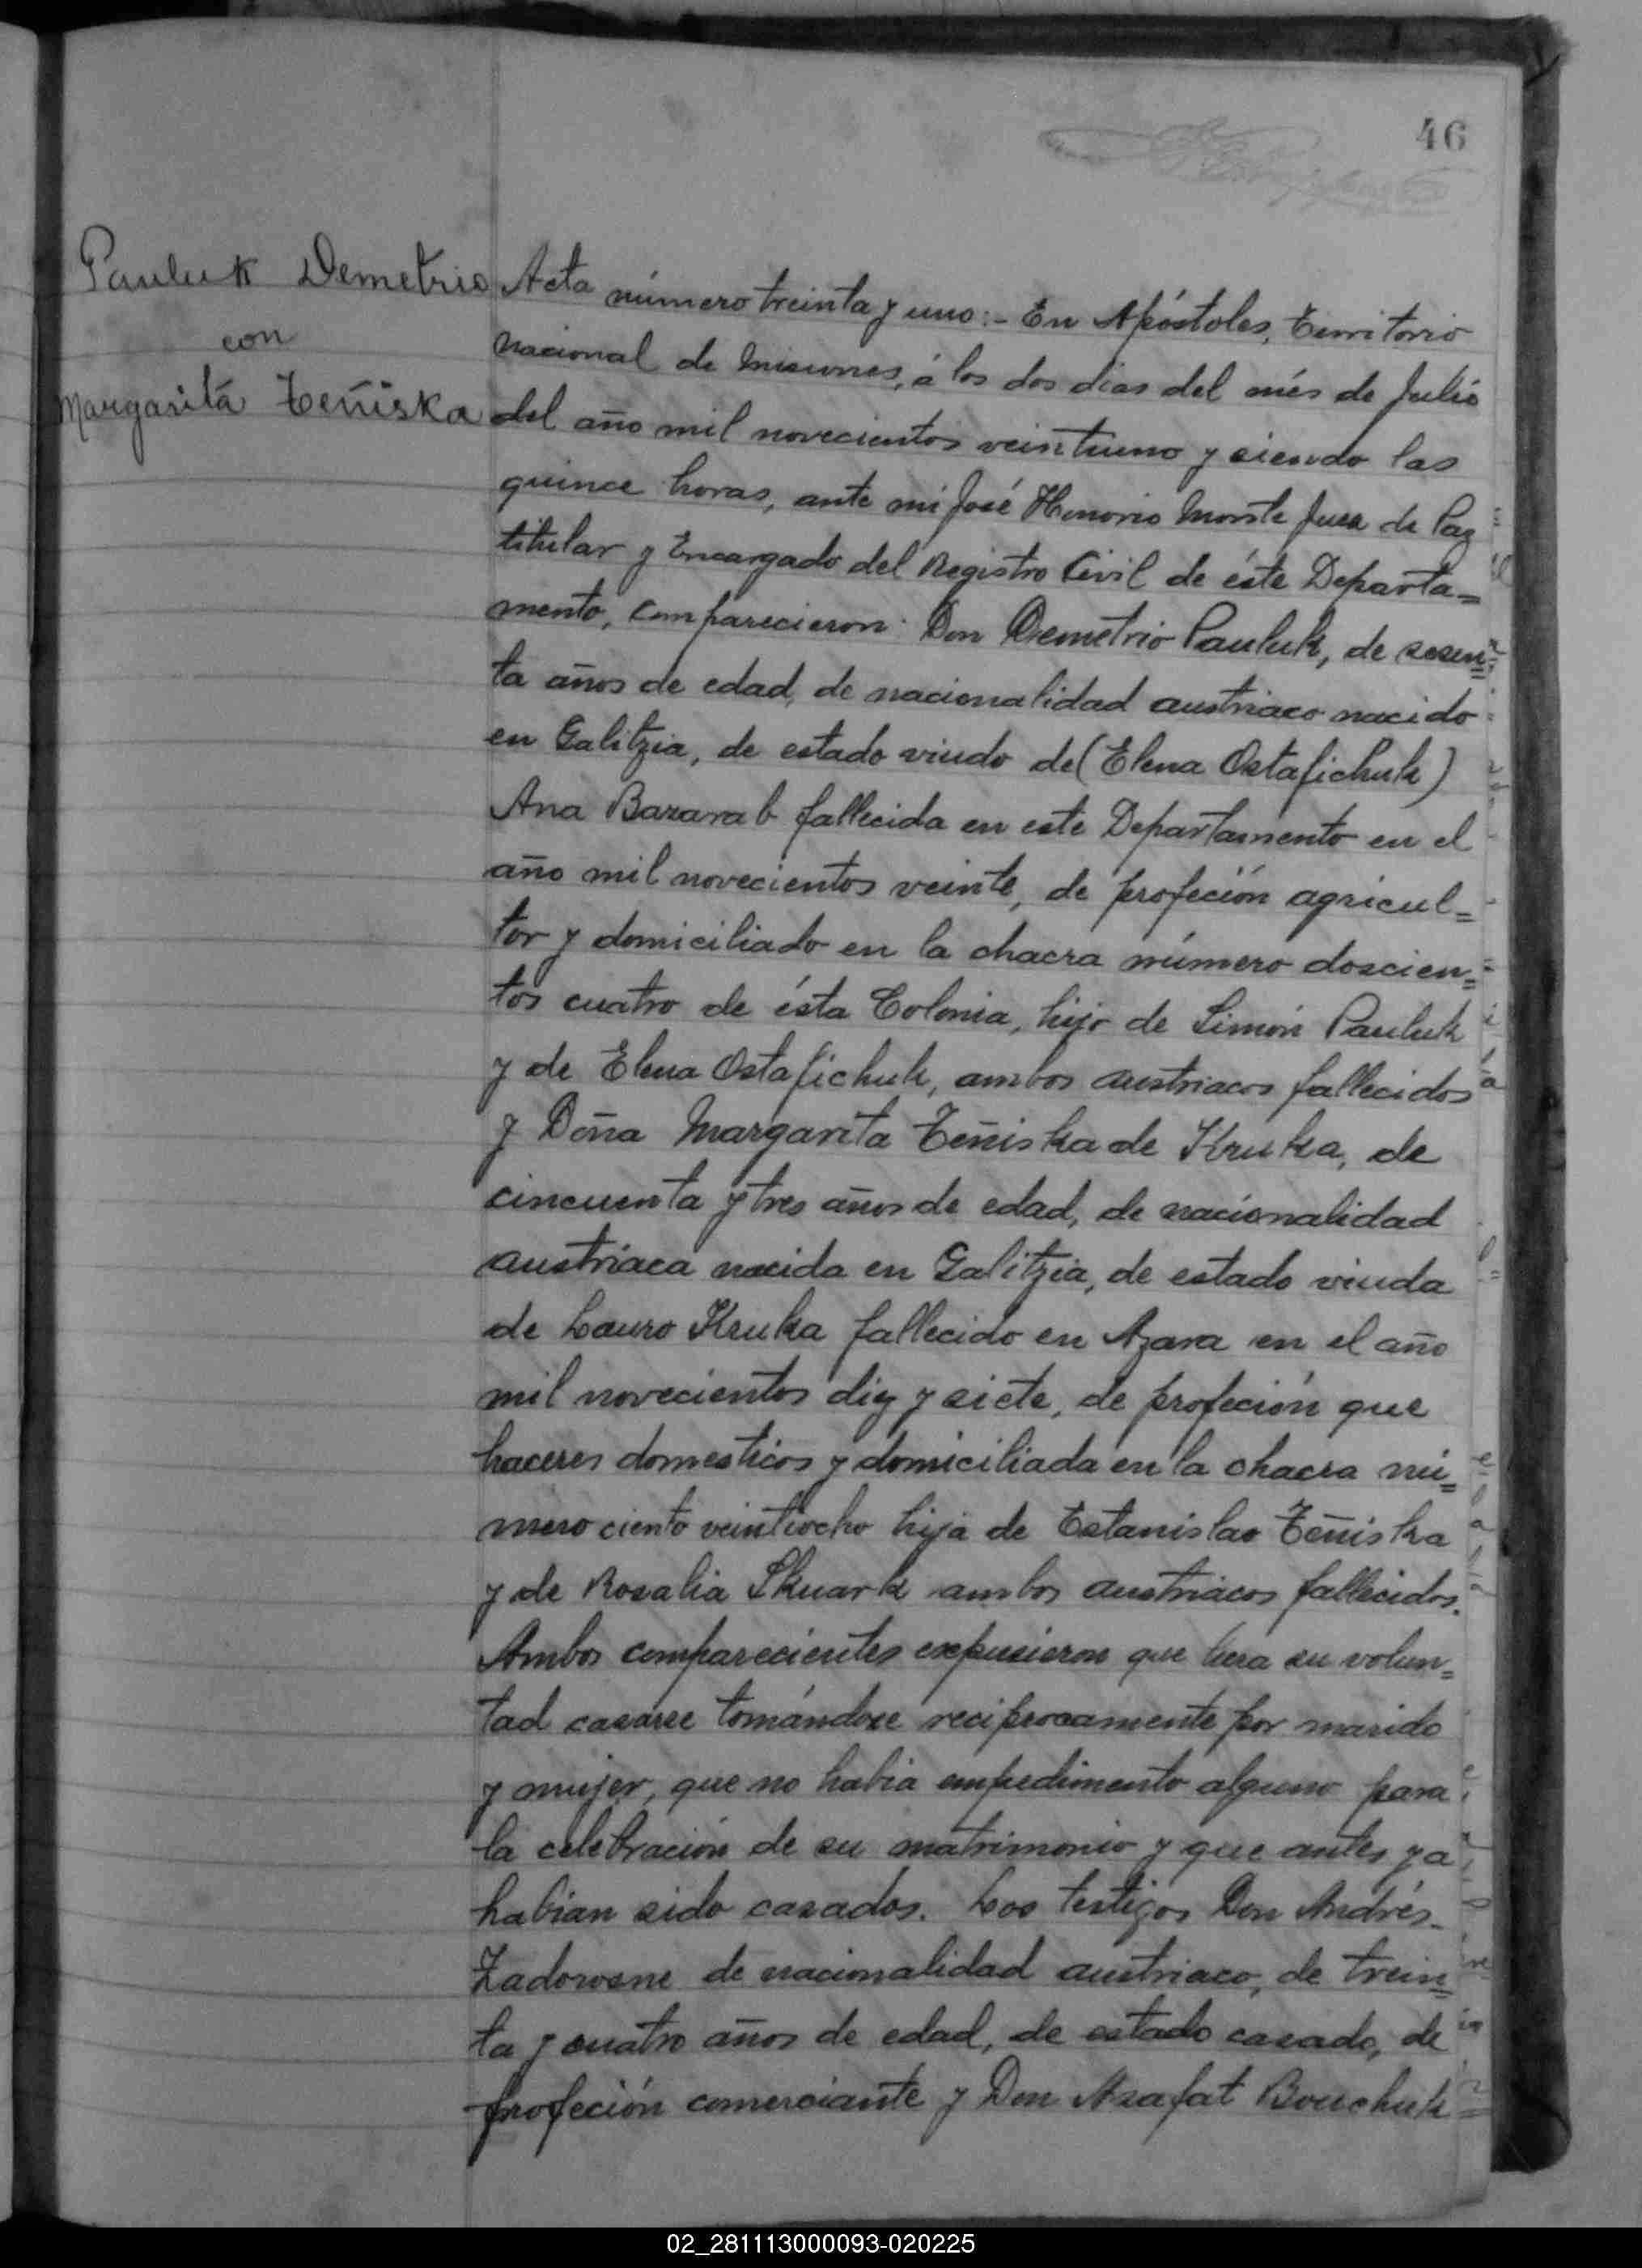 46
Pauluk Demetrio
con
Margarita Teñiska
Acta número treinta y uno:- En Apóstoles, Territorio
nacional de Misiones, á los dos dias del més de Julio
del año mil novecientos veintiuno y siendo las
quince horas, ante mi José Honorio Monte Juez de Paz
titular y Encargado del Registro Civil de éste Departa=
mento, comparecieron: Don Demetrio Pauluk, de sesen=
ta años de edad, de nacionalidad austriaco nacido
en Galitzia, de estado viudo de (Elena Ostafichuk)
Ana Bazarab fallecida en este Departamento en el
año mil novecientos veinte, de profeción agricul=
tor y domiciliado en la chacra número doscien=
tos cuatro de ésta Colonia, hijo de Simón Pauluk
y de Elena Ostafichuk, ambos austriacos fallecidos
y Doña Margarita Teñiska de Kruka, de
cincuenta y tres años de edad, de nacionalidad
austriaca nacida en Galitzia, de estado viuda
de Lauro Kruka fallecido en Azara en el año
mil novecientos diez y siete, de profeción que
haceres domesticos y domiciliada en la chacra nú=
mero ciento veintiocho hija de Estanislao Teñiska
y de Rosalia Skuark ambos austriacos fallecidos.
Ambos comparecientes expusieron que hera su volun=
tad casarse tomándose reciprocamente por marido
y mujer, que no habia empedimento alguno para
la celebración de su matrimonio y que antes ya
habian sido casados. Los testigos Don Andrés
Zadorosne de nacionalidad austriaco, de trein=
ta y cuatro años de edad, de estado casado, de
profeción comerciante y Don Asafat Bouchuk
02_281113000093-020225